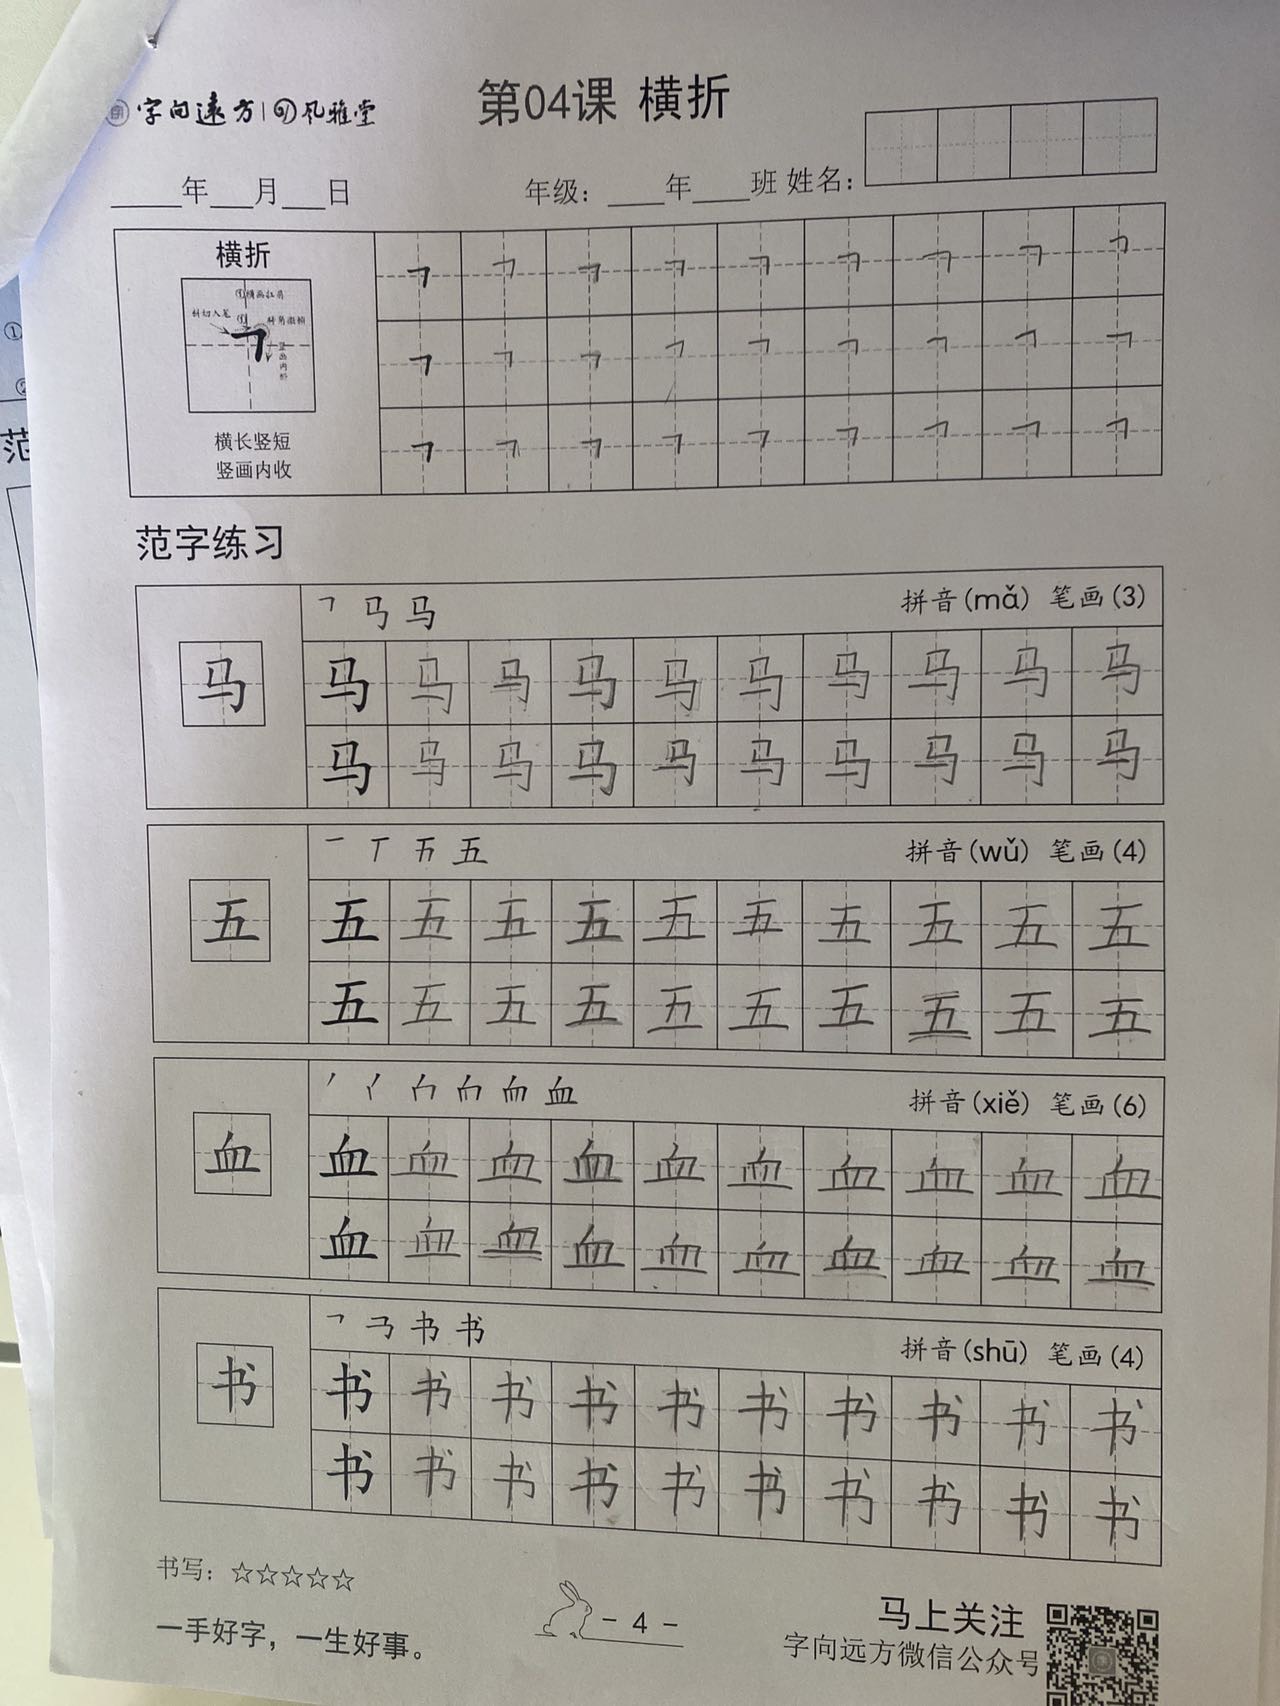 字向遠方 | 风雅堂
第04课 横折
____年__月__日 年级：___年___班 姓名：
横折
①横画扛肩
斜切入笔
转角微顿
竖画内斜
横长竖短
竖画内收
范字练习
拼音(mǎ) 笔画(3)
马 马 马 马 马 马 马 马 马 马 马
马 马 马 马 马 马 马 马 马 马
一 丅 五 拼音(wǔ) 笔画(4)
五 五 五 五 五 五 五 五 五 五 五
五 五 五 五 五 五 五 五 五 五
血 拼音(xiě) 笔画(6)
血 血 血 血 血 血 血 血 血 血 血
血 血 血 血 血 血 血 血 血 血
书 拼音(shū) 笔画(4)
书 书 书 书 书 书 书 书 书 书 书
书 书 书 书 书 书 书 书 书 书
书写：☆☆☆☆☆
一手好字，一生好事。
- 4 -
马上关注
字向远方微信公众号
①
②
范